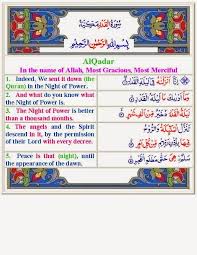 سُورَةُ الْقَدْرِ مَكِّيَّة
بِسْمِ اللَّهِ الرَّحْمَٰنِ الرَّحِيمِ
AlQadar
In the name of Allah, Most Gracious, Most Merciful
1. Indeed, We sent it down (the
Quran) in the Night of Power.
إِنَّا أَنزَلْنَاهُ فِي لَيْلَةِ الْقَدْرِ
2. And what do you know what
the Night of Power is.
وَمَا أَدْرَاكَ مَا لَيْلَةُ الْقَدْرِ
3. The Night of Power is better
than a thousand months.
لَيْلَةُ الْقَدْرِ خَيْرٌ مِّنْ أَلْفِ شَهْرٍ
4. The angels and the Spirit
descend in it, by the permission
of their Lord with every decree.
تَنَزَّلُ الْمَلَائِكَةُ وَالرُّوحُ
فِيهَا بِإِذْنِ رَبِّهِم مِّن كُلِّ أَمْرٍ
5. Peace is that (night), until
the appearance of the dawn.
سَلَامٌ هِيَ حَتَّىٰ مَطْلَعِ الْفَجْرِ